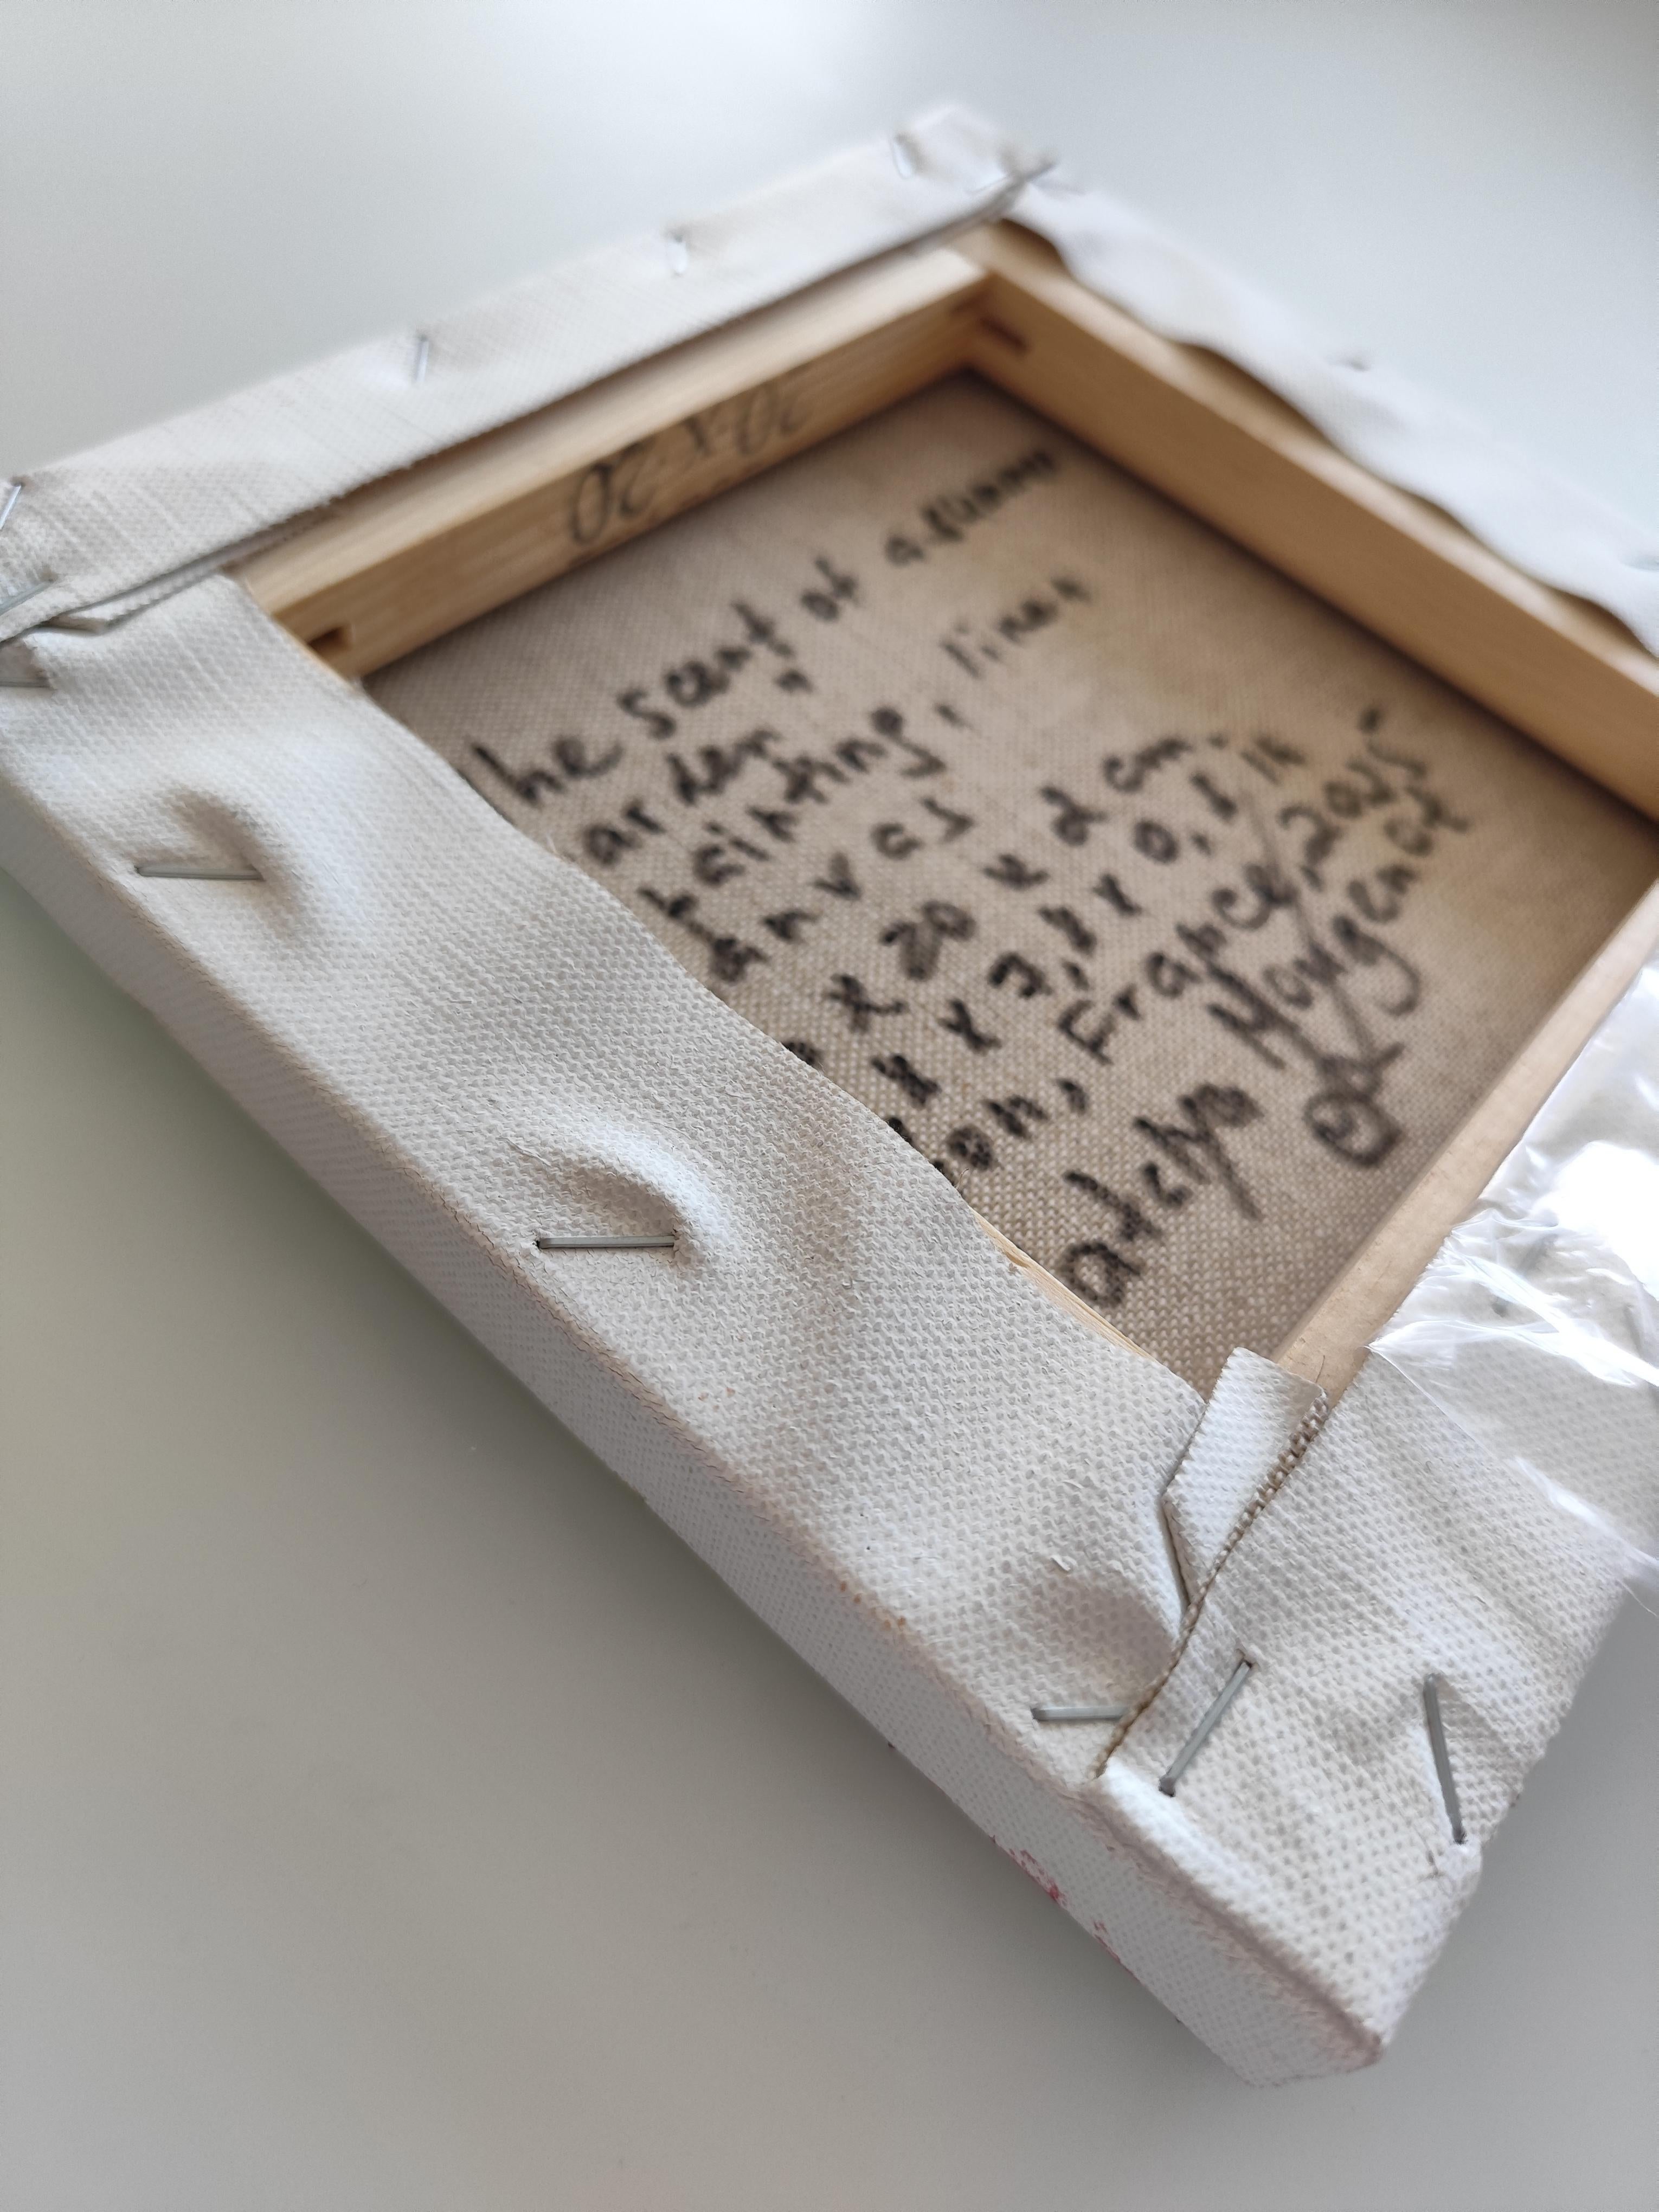 20 x 20
he scent of autumn
arden"
painting, linen
canvas
x 20 x 2 cm.
x 7,8 x 0,8 in
on, France, 2025
adelya Mongenot